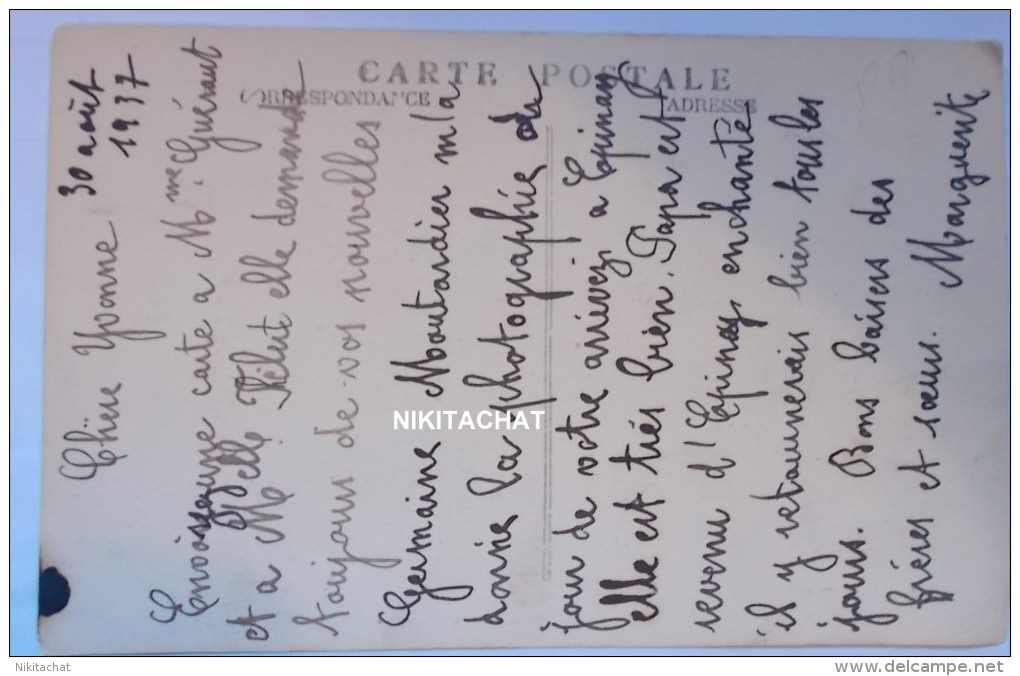 CARTE POSTALE
CORRESPONDANCE
ADRESSE
30 août
1937
Chère Yvonne
Envoiyez une carte a Mme Guéraut
et a Melle elle demande
toujours de vos nouvelles
Germaine Moutardier m'la
donnie la photographie du
jour de votre arrivez a Epinay
elle est très bien. Papa est
revenu d'Epinay enchanté
il y retournerais bien tous les
jours. Bons baisers des
frères et sœurs. Marguerite
NIKITACHAT
Nikitachat
www.delcampe.net